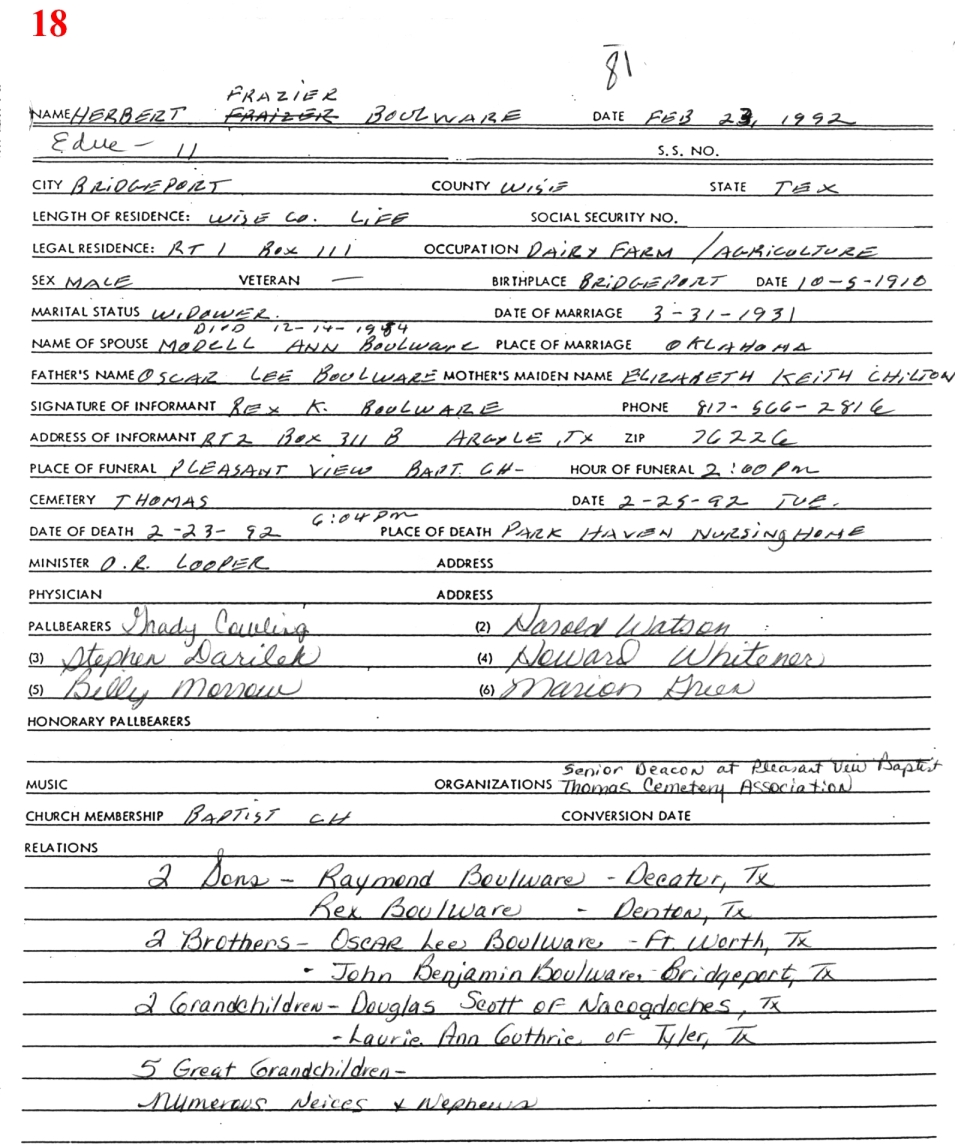 18
81
FRAZIER
NAME HERBERT FRAIZER BOULWARE DATE FEB 23, 1992
Educ - 11 S.S. NO.
CITY BRIDGEPORT COUNTY WISE STATE TEX
LENGTH OF RESIDENCE: WISE CO. LIFE SOCIAL SECURITY NO.
LEGAL RESIDENCE: RT 1 BOX 111 OCCUPATION DAIRY FARM / AGRICULTURE
SEX MALE VETERAN — BIRTHPLACE BRIDGEPORT DATE 10-5-1910
MARITAL STATUS WIDOWER. DATE OF MARRIAGE 3-31-1931
DIED 12-14-1984
NAME OF SPOUSE MODELL ANN BOULWARE PLACE OF MARRIAGE OKLAHOMA
FATHER'S NAME OSCAR LEE BOULWARE MOTHER'S MAIDEN NAME ELIZABETH KEITH CHILTON
SIGNATURE OF INFORMANT REX K. BOULWARE PHONE 817-566-2816
ADDRESS OF INFORMANT RT 2 BOX 311 B ARGYLE, TX ZIP 76226
PLACE OF FUNERAL PLEASANT VIEW BAPT. CH- HOUR OF FUNERAL 2:00 PM
CEMETERY THOMAS DATE 2-25-92 TUE.
6:04 PM
DATE OF DEATH 2-23-92 PLACE OF DEATH PARK HAVEN NURSING HOME
MINISTER O.R. LOOPER ADDRESS
PHYSICIAN ADDRESS
PALLBEARERS Grady Cowling (2) Harold Watson
(3) Stephen Darilek (4) Howard Whitener
(5) Billy Morrow (6) Marion Green
HONORARY PALLBEARERS
Senior Deacon at Pleasant View Baptist
MUSIC ORGANIZATIONS Thomas Cemetery Association
CHURCH MEMBERSHIP BAPTIST CH CONVERSION DATE
RELATIONS
2 Sons - Raymond Boulware - Decatur, Tx
Rex Boulware - Denton, Tx
2 Brothers - Oscar Lee Boulware - Ft. Worth, Tx
- John Benjamin Boulware, Bridgeport, Tx
2 Grandchildren - Douglas Scott of Nacogdoches, Tx
- Laurie Ann Guthrie of Tyler, Tx
5 Great Grandchildren -
Numerous Neices & Nephews